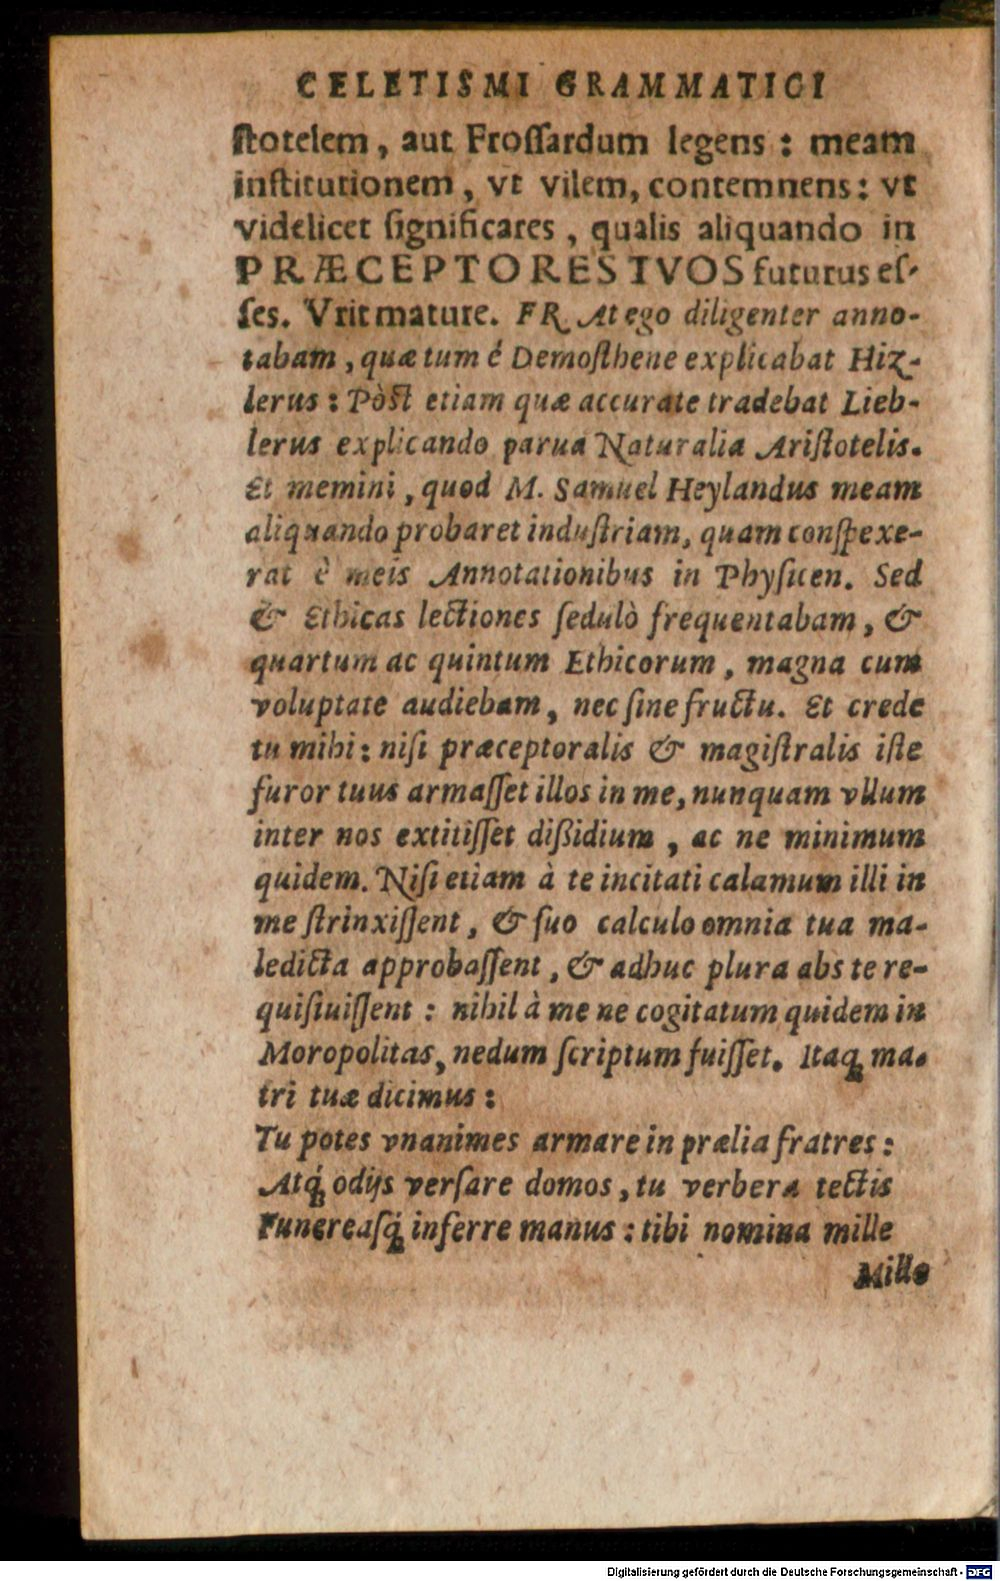 CELETISMI GRAMMATICI
ſtotelem, aut Froſſardum legens: meam
inſtitutionem, vt vilem, contemnens: vt
videlicet ſignificares, qualis aliquando in
PRÆCEPTORES TVOS futurus eſ-
ſes. Vrit mature. FR. At ego diligenter anno-
tabam, quæ tum é Demoſthene explicabat Hiz-
lerus: Pòſt etiam quæ accurate tradebat Lieb-
lerus explicando parua Naturalia Ariſtotelis.
Et memini, quod M. Samuel Heylandus meam
aliquando probaret induſtriam, quam conſpexe-
rat è meis Annotationibus in Phyſicen. Sed
& Ethicas lectiones ſedulò frequentabam, &
quartum ac quintum Ethicorum, magna cum
voluptate audiebam, nec ſine fructu. Et crede
tu mihi: niſi præceptoralis & magiſtralis iſte
furor tuus armaſſet illos in me, nunquam vllum
inter nos extitiſſet dißidium, ac ne minimum
quidem. Niſi etiam à te incitati calamum illi in
me ſtrinxiſſent, & ſuo calculo omnia tua ma-
ledicta approbaſſent, & adhuc plura abs te re-
quiſiuiſſent: nihil à me ne cogitatum quidem in
Moropolitas, nedum ſcriptum fuiſſet. Itaq; ma-
tri tuæ dicimus:
Tu potes vnanimes armare in prælia fratres:
Atq́; odijs verſare domos, tu verbera tectis
Funereaſq́; inferre manus: tibi nomina mille
Mille
Digitalisierung gefördert durch die Deutsche Forschungsgemeinschaft - DFG